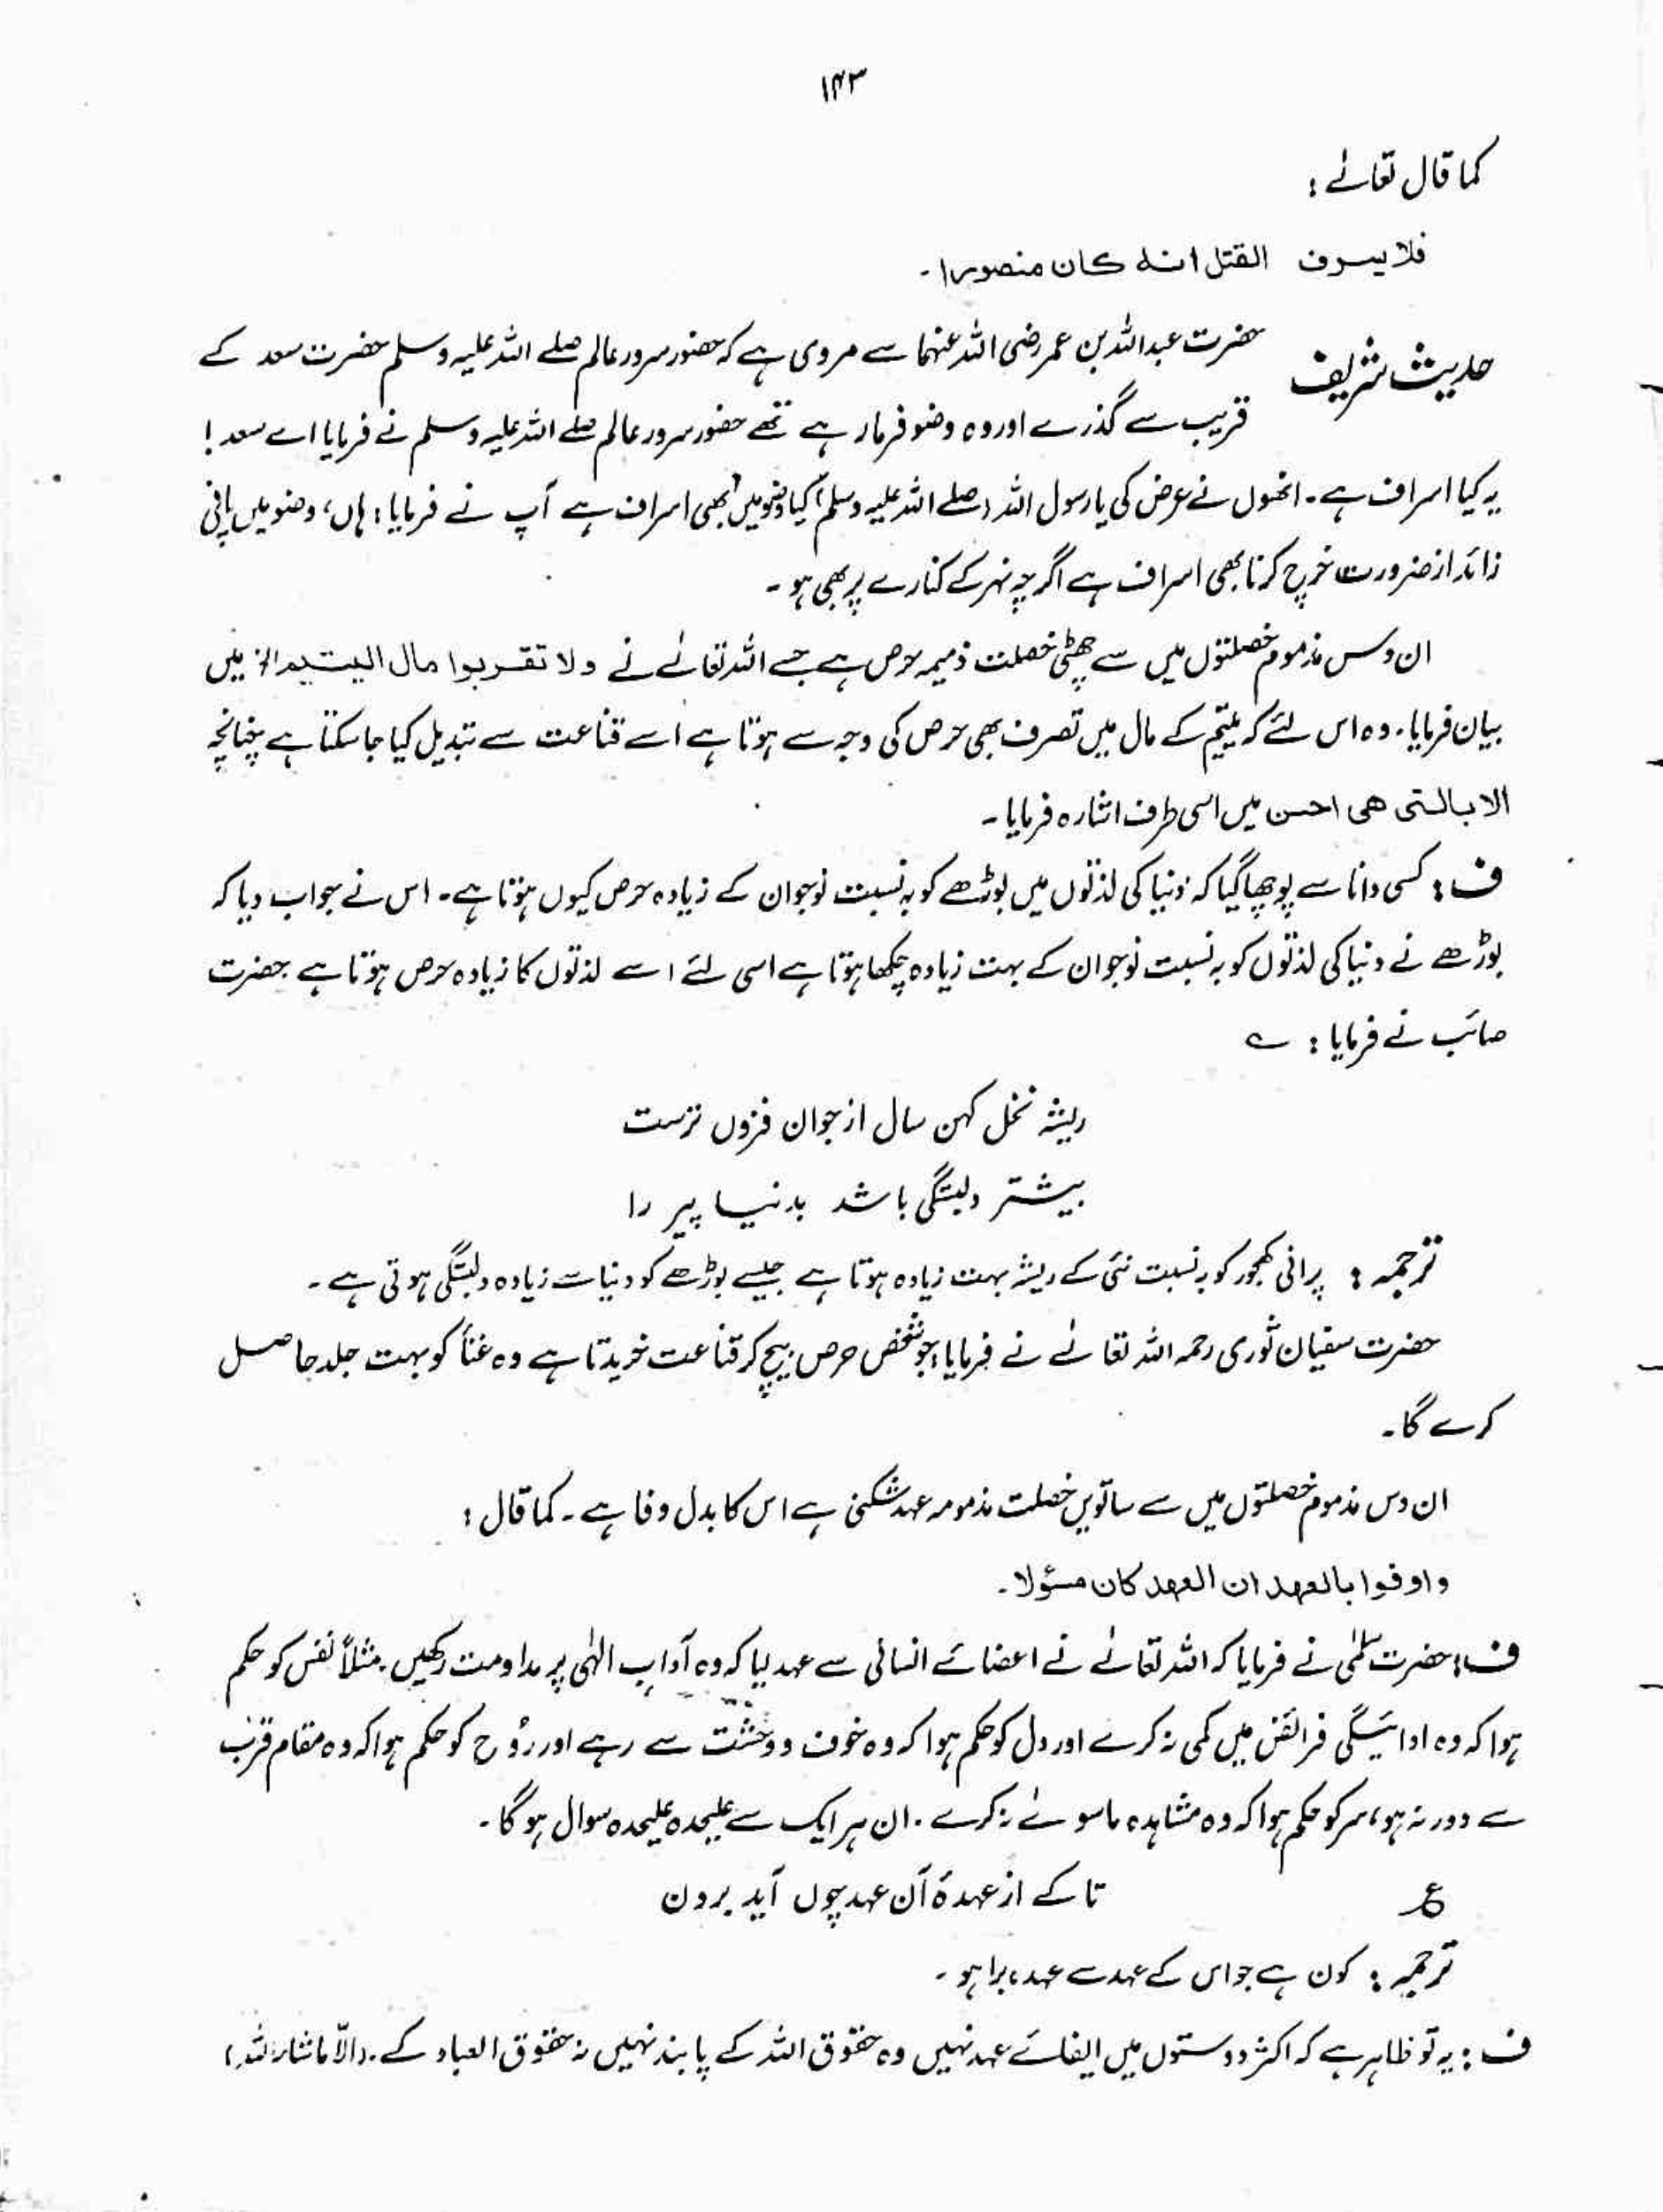 ۱۴۳
کما قال تعالےٰ :
فلا یسرف القتل انہ کان منصورا۔
حدیث شریف حضرت عبداللہ بن عمر رضی اللہ عنہما سے مروی ہے کہ حضور سرور عالم صلے اللہ علیہ وسلم حضرت سعد کے
قریب سے گذرے اور وہ وضو فرما رہے تھے حضور سرور عالم صلے اللہ علیہ وسلم نے فرمایا اے سعد !
یہ کیا اسراف ہے۔ انھوں نے عرض کی یا رسول اللہ (صلے اللہ علیہ وسلم) کیا وضو میں بھی اسراف ہے آپ نے فرمایا : ہاں، وضو میں پانی
زائد از ضرورت خرچ کرنا بھی اسراف ہے اگرچہ نہر کے کنارے پر بھی ہو۔
ان دس مذموم خصلتوں میں سے چھٹی خصلت ذمیمہ حرص ہے جسے اللہ تعالےٰ نے ولا تقربوا مال الیتیم الخ میں
بیان فرمایا۔ وہ اس لئے کہ یتیم کے مال میں تصرف بھی حرص کی وجہ سے ہوتا ہے اسے قناعت سے تبدیل کیا جا سکتا ہے چنانچہ
الا بالتی ھی احسن میں اسی طرف اشارہ فرمایا۔
ف : کسی دانا سے پوچھا گیا کہ دنیا کی لذتوں میں بوڑھے کو بہ نسبت نوجوان کے زیادہ حرص کیوں ہوتا ہے۔ اس نے جواب دیا کہ
بوڑھے نے دنیا کی لذتوں کو بہ نسبت نوجوان کے بہت زیادہ چکھا ہوتا ہے اسی لئے اسے لذتوں کا زیادہ حرص ہوتا ہے حضرت
صائب نے فرمایا : ؎
ریشہ نخل کہن سال از جوان فزوں ترست
بیشتر دلبستگی باشد بدنیا پیر را
ترجمہ : پرانی کھجور کو بہ نسبت نئی کے ریشہ بہت زیادہ ہوتا ہے جیسے بوڑھے کو دنیا سے زیادہ دلبستگی ہوتی ہے۔
حضرت سفیان ثوری رحمہ اللہ تعالےٰ نے فرمایا : جو شخص حرص بیچ کر قناعت خریدتا ہے وہ غنأ کو بہت جلد حاصل
کرے گا۔
ان دس مذموم خصلتوں میں سے ساتویں خصلت مذمومہ عہد شکنی ہے اس کا بدل وفا ہے۔ کما قال :
واوفوا بالعھد ان العھد کان مسؤلا۔
ف : حضرت سلمٰی نے فرمایا کہ اللہ تعالےٰ نے اعضائے انسانی سے عہد لیا کہ وہ آداب الٰہی پر مداومت رکھیں۔ مثلاً نفس کو حکم
ہوا کہ وہ ادائیگی فرائض میں کمی نہ کرے اور دل کو حکم ہوا کہ وہ خوف و وحشت سے رہے اور رُوح کو حکم ہوا کہ وہ مقام قرب
سے دور نہ ہو، سر کو حکم ہوا کہ وہ مشاہدہ ماسوےٰ نہ کرے۔ ان ہر ایک سے علیحدہ علیحدہ سوال ہو گا۔
ع تا کے از عہدۂ آن عہد چوں آید برون
ترجمہ : کون ہے جو اس کے عہد سے عہدہ برا ہو۔
ف : یہ تو ظاہر ہے کہ اکثر دوستوں میں ایفائے عہد نہیں وہ حقوق اللہ کے پابند نہیں نہ حقوق العباد کے۔ (الّا ماشاء اللہ)